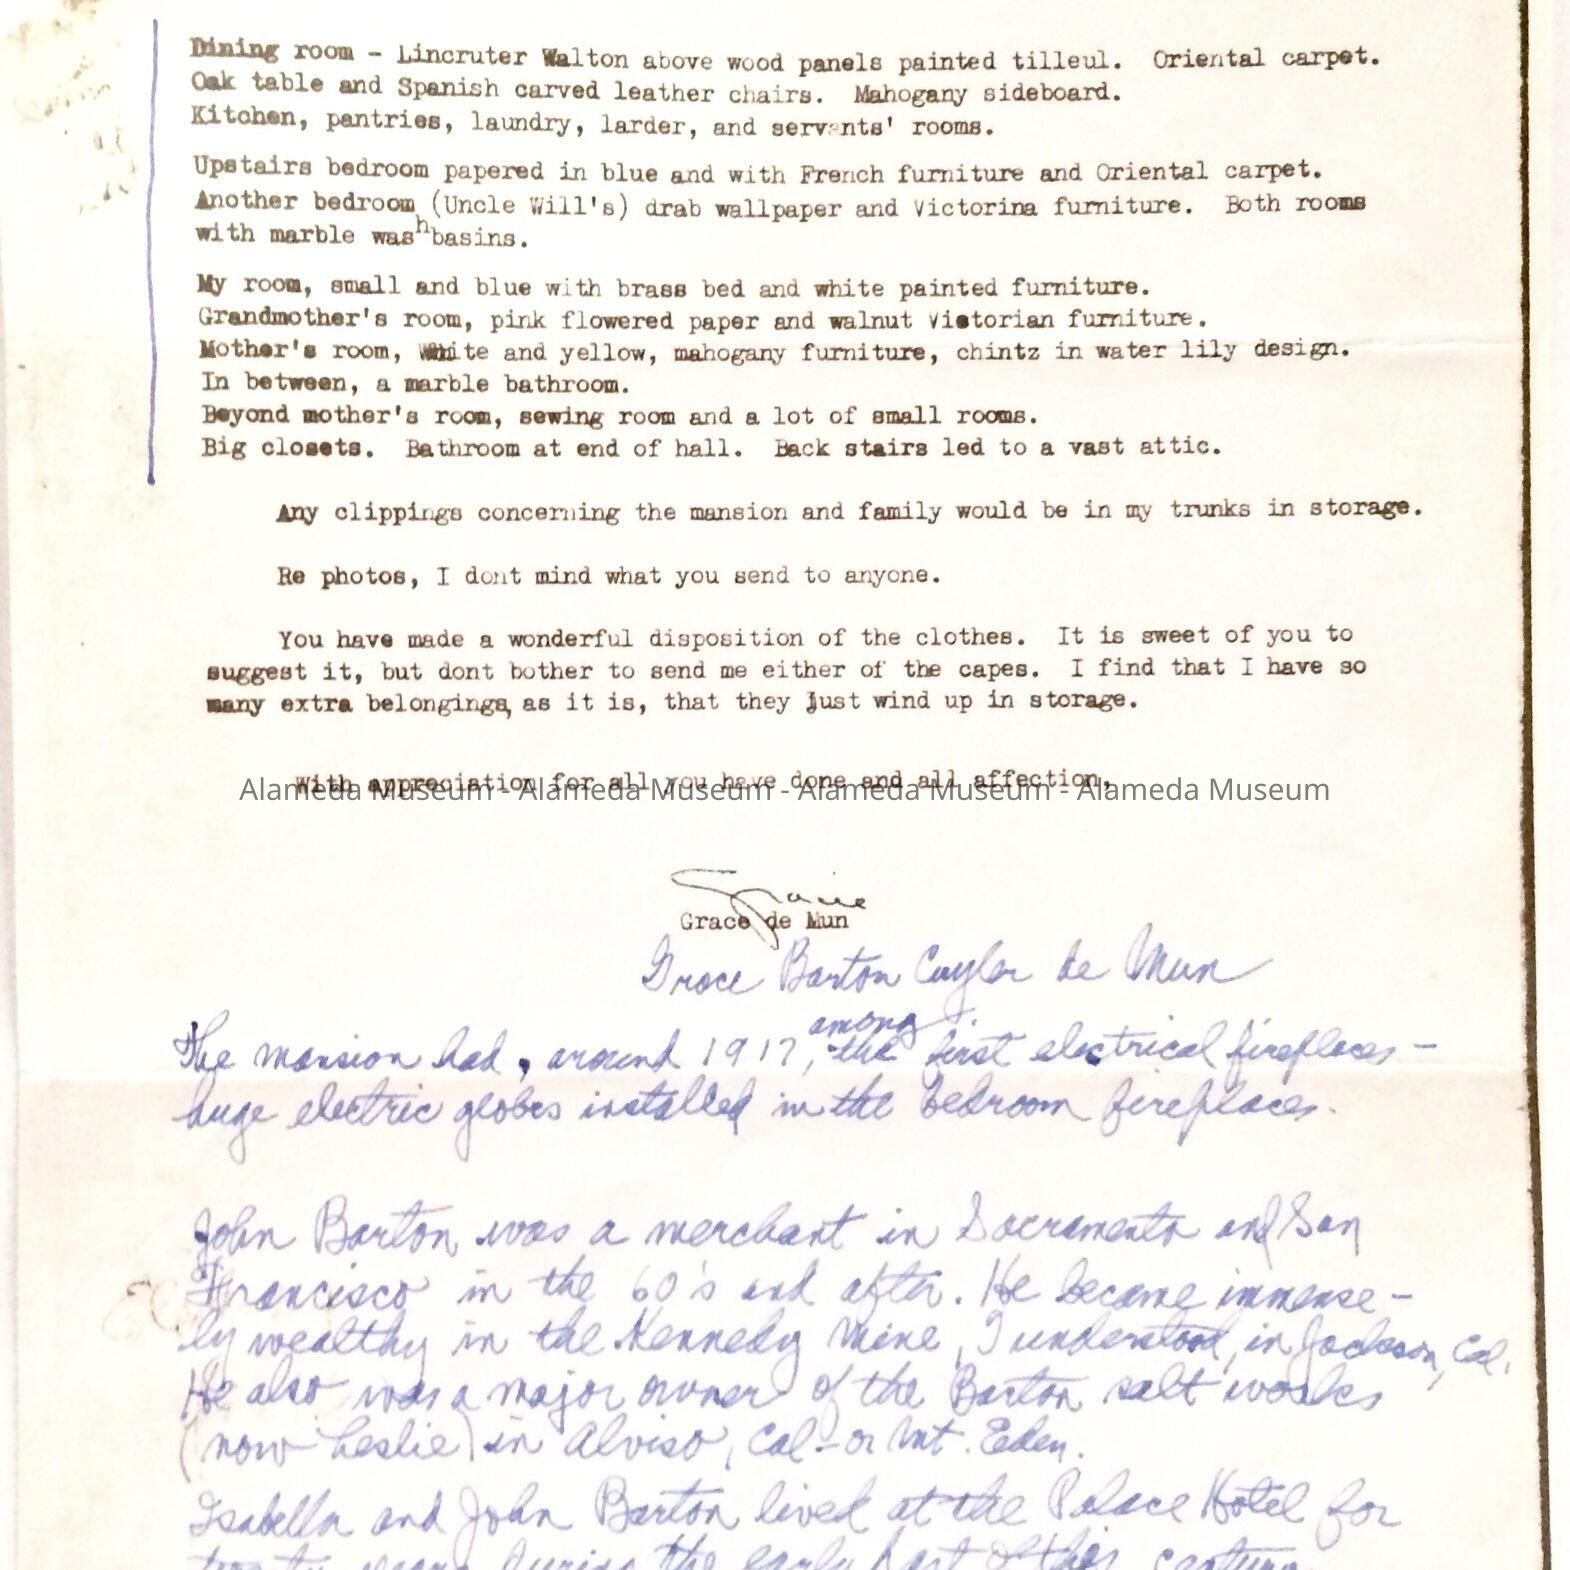 Dining room - Lincruter Walton above wood panels painted tilleul. Oriental carpet.
Oak table and Spanish carved leather chairs. Mahogany sideboard.
Kitchen, pantries, laundry, larder, and servants' rooms.
Upstairs bedroom papered in blue and with French furniture and Oriental carpet.
Another bedroom (Uncle Will's) drab wallpaper and Victorina furniture. Both rooms
with marble washbasins.
My room, small and blue with brass bed and white painted furniture.
Grandmother's room, pink flowered paper and walnut Victorian furniture.
Mother's room, White and yellow, mahogany furniture, chintz in water lily design.
In between, a marble bathroom.
Beyond mother's room, sewing room and a lot of small rooms.
Big closets. Bathroom at end of hall. Back stairs led to a vast attic.
Any clippings concerning the mansion and family would be in my trunks in storage.
Re photos, I dont mind what you send to anyone.
You have made a wonderful disposition of the clothes. It is sweet of you to
suggest it, but dont bother to send me either of the capes. I find that I have so
many extra belongings, as it is, that they just wind up in storage.
With appreciation for all you have done and all affection,
Alameda Museum - Alameda Museum - Alameda Museum - Alameda Museum
Grace de Mun
Grace Barton Cuyler de Mun
The mansion had, around 1917, among the first electrical fireplaces -
huge electric globes installed in the bedroom fireplaces.
John Barton was a merchant in Sacramento and San
Francisco in the 60's and after. He became immense-
ly wealthy in the Kennedy Mine, I understood, in Jackson, Cal.
He also was a major owner of the Barton salt works
(now Leslie) in Alviso, Cal - or Mt. Eden.
Isabella and John Barton lived at the Palace Hotel for
twenty years during the early part of this century.